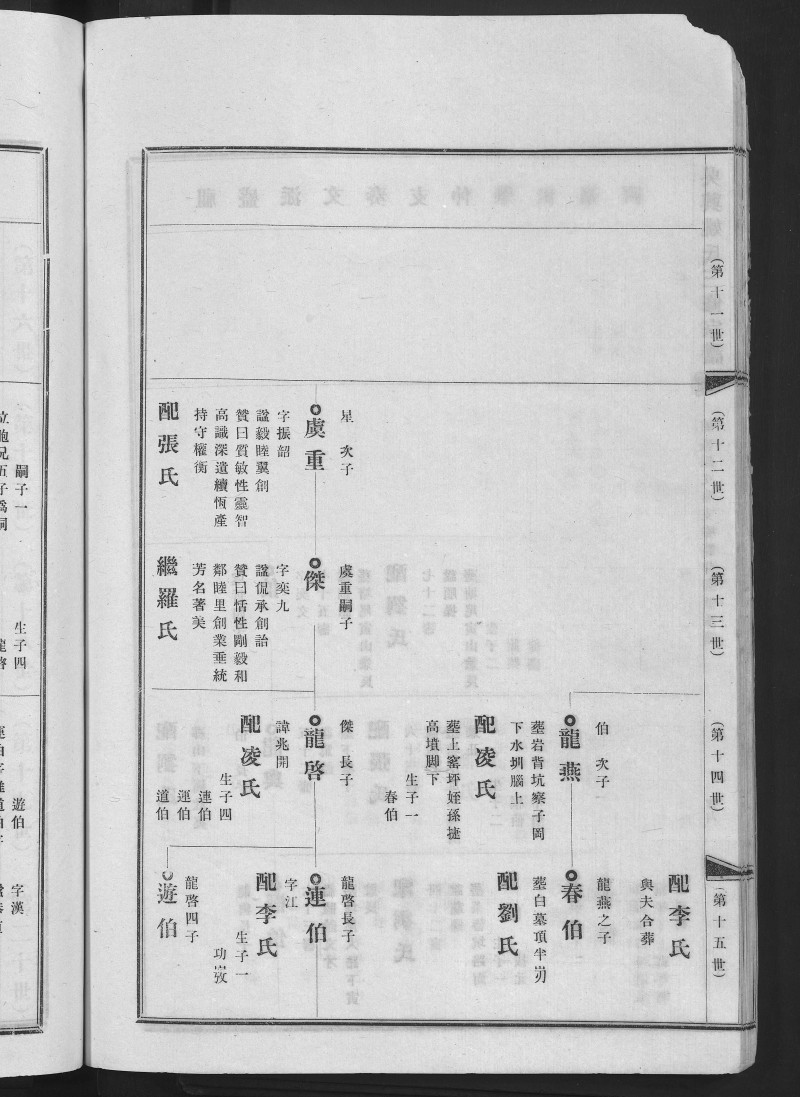 （第十一世）
（第十二世）
（第十三世）
（第十四世）
（第十五世）
星 次子
虞重
字振韶
謚毅睦翼創
贊曰質敏性靈智
高識深遺續恆產
持守權衡
配張氏
虞重嗣子
傑
字奕九
謚侃承創詒
贊曰恬性剛毅和
鄰睦里創業垂統
芳名著美
繼羅氏
伯 次子
龍燕
塟岩背坑寮子岡
下水圳腦上
配凌氏
塟上窰坪姪孫㨗
高墳脚下
生子一
春伯
傑 長子
龍啓
諱兆開
配凌氏
生子四
連伯
運伯
道伯
配李氏
與夫合葬
龍燕之子
春伯
塟白墓頂半岃
配劉氏
龍啓長子
連伯
字江
配李氏
生子一
功㟼
龍啓四子
遊伯
嗣子一
立胞兄五子爲嗣
生子四
遊伯
字漢